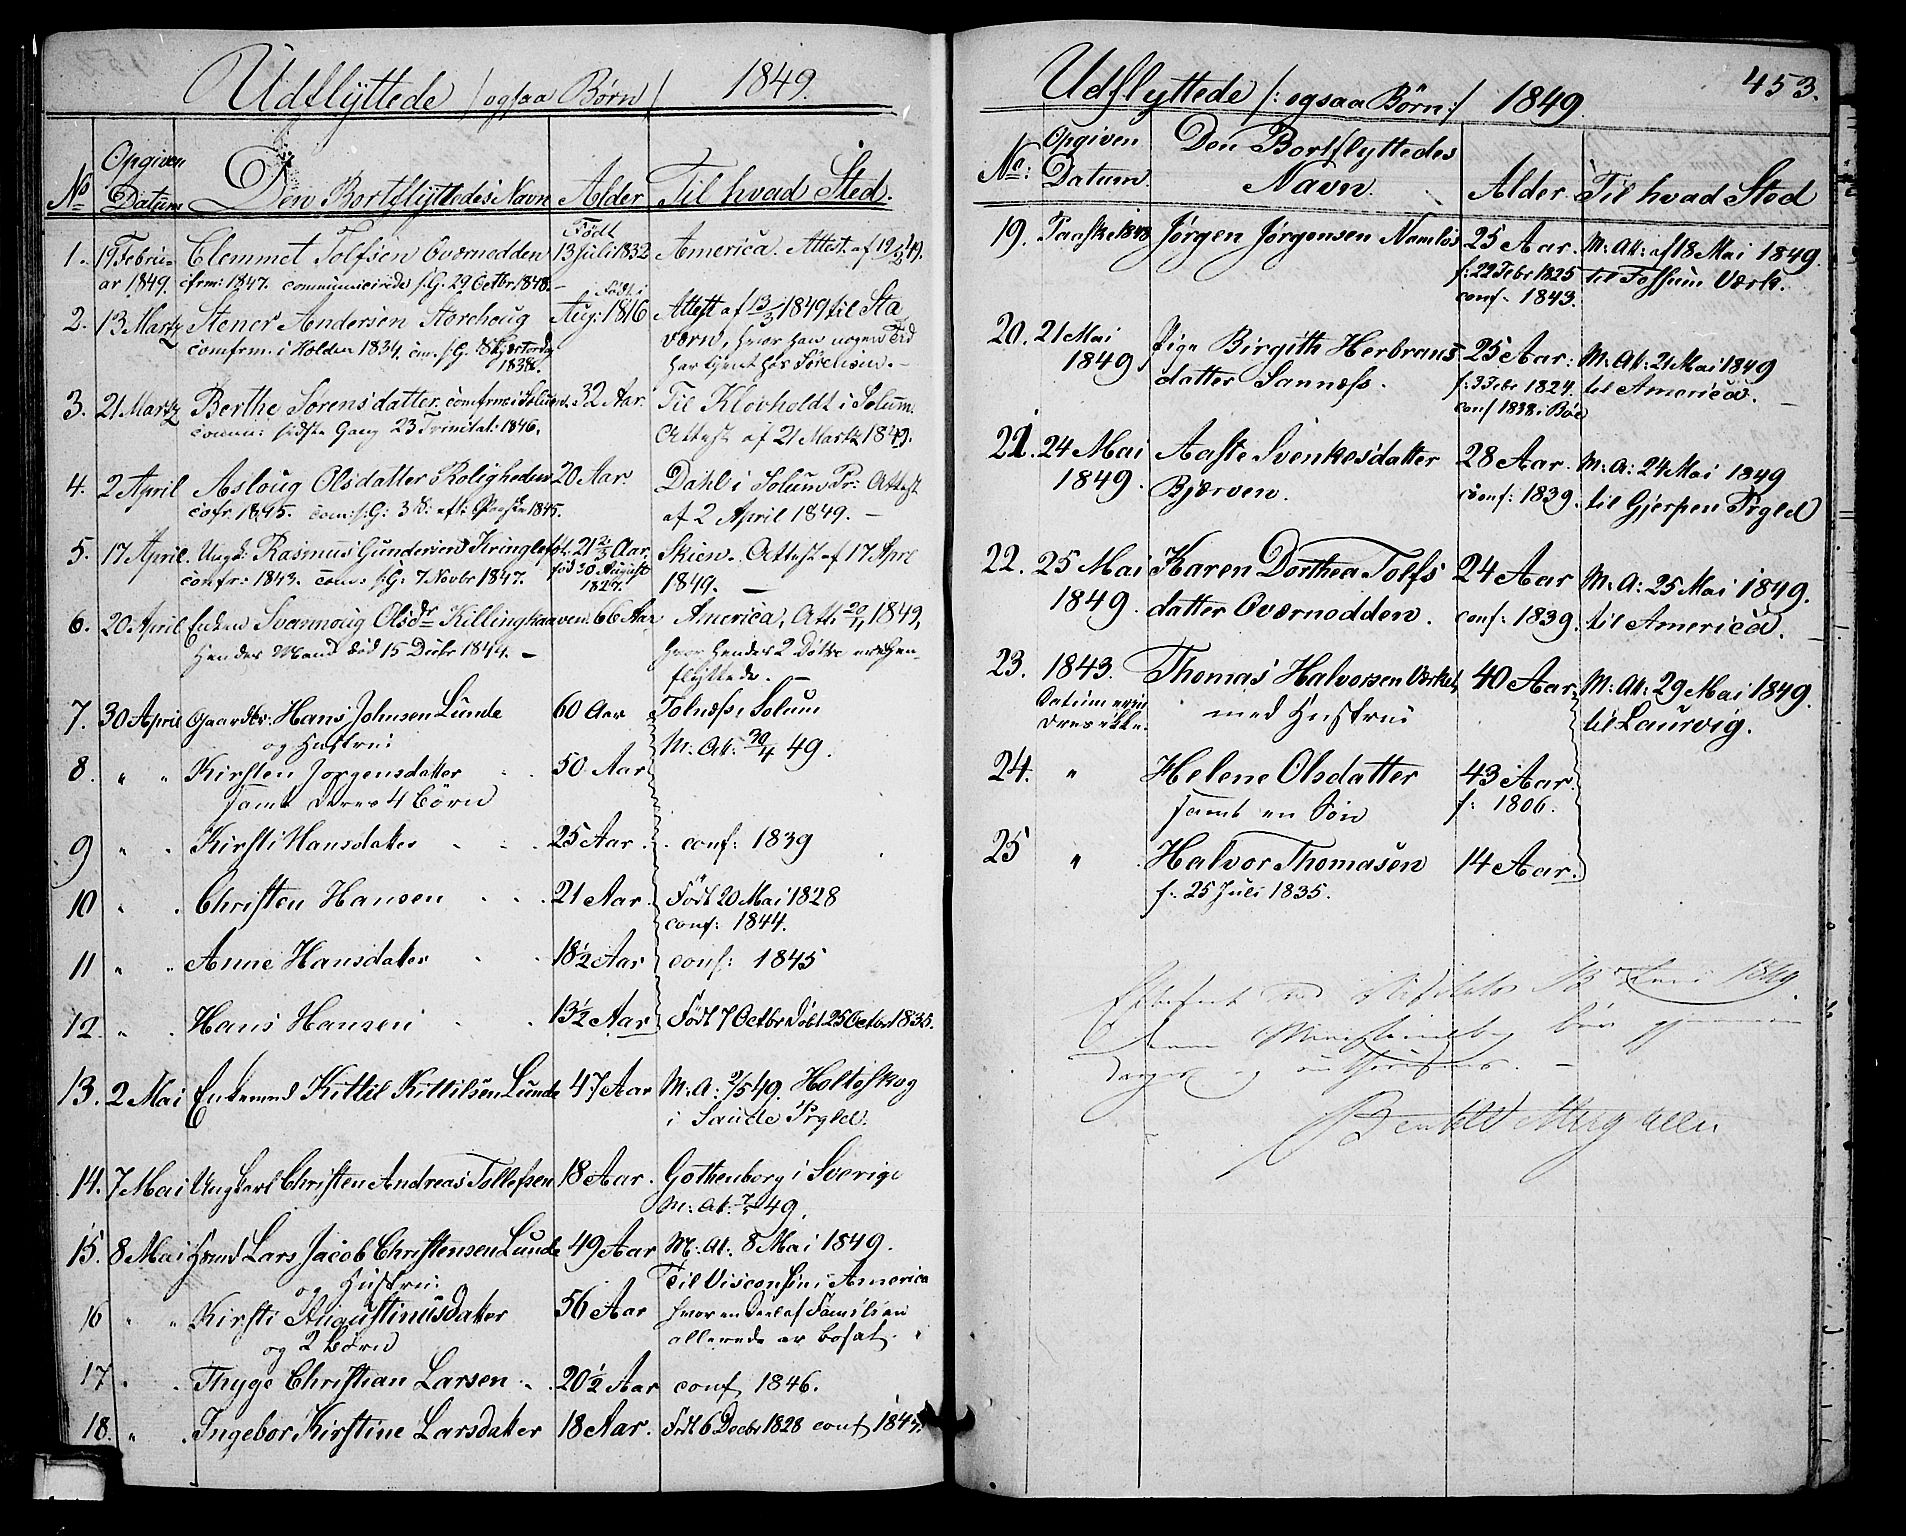 Udflyttede /ogsaa Børn/ 1849.
No Opgiven Datum Den Bortflyttedes Navn Alder Til hvad Sted.
1. 19 Februar 1849. Clemmet Tolfsen Oværnodden Født 13 Juli 1832 America. Attest af 19/2 49.
cfrm: 1847. communicerede s. G. 29 Octbr. 1848.
2. 13 Martz Stener Andersen Storehoug Født i Aug: 1816 Attest af 13/3 1849 til Sta
comfrm. i Holden 1834. cm. s. G. Skjærtorsd. 1838. værn, hvor han nogen Tid
har tjent hos Sørensen.
3. 21 Martz Berthe Sørensdatter. comfrm: i Solum. 32 Aar. Til Klovholdt i Solum.
commu: sidste Gang 23 Trinitat: 1846. Attest af 21 Martz 1849.
4. 2 April Asloug Olsdatter Roligheden 20 Aar Dahl i Solum Pr: Attest
cofr. 1845. com: s: G: 3 S: eft: Paaske 1845. af 2 April 1849. —
5. 17 April. Ungk: Rasmus Gundersen Kringlefot. 21 2/3 Aar. Skien. Attest af 17 Apri
confr: 1843. com: s: G: 7 Novbr 1847. fød 30 August 1827. 1849. —
6. 20 April Enken Svannoug Olsdr Killinghaaven. 66 Aar America, Att. 20/4 1849,
Hendes Mand død 15 Decbr 1844. — hvor hendes 2 Døttre ere hen-
flyttede. —
7. 30 April Gaardbr: Hans Johnsen Lunde 60 Aar Tolnæss i Solum
og Hustrui M: At: 30/4 49.
8. " " Kirsten Jørgensdatter 50 Aar
samt deres 4 Børn
9 " " Kirsti Hansdatter 25 Aar. conf: 1839
10 " " Christen Hansen 21 Aar. Født 20 Mai 1828
conf: 1844.
11 " " Anne Hansdatter 18 1/2 Aar conf: 1845
12 " " Hans Hansen 13 1/2 Aar Født 7 Octbr døbt 25 Octbr 1835.
13. 2 Mai Enkemand Kittil Kittilsen Lunde 47 Aar M: A: 2/5 49. Holteskog
i Saude Prgld.
14. 7 Mai Ungkarl Christen Andreas Tollefsen 18 Aar. Gothenborg i Sverige
M: At: 7/5 49.
15. 8 Mai Hsmd Lars Jacob Christensen Lunde 49 Aar M: At: 8 Mai 1849.
og Hustrui Til Visconsin i America
16 " " Kirsti Augustinusdatter 56 Aar hvor en Deel af Familien
og 2 Børn allerede er bosat.
17 " " Thyge Christian Larsen 20 1/2 Aar conf. 1846.
18. " Ingebor Kirstine Larsdatter 18 Aar. Født 6 Decbr 1828 conf.
Udflyttede /: ogsaa Børn :/ 1849. 453.
No: Opgiven Datum. Den Bortflyttedes Navn. Alder Til hvad Sted
19. Paaske 1848 Jørgen Jørgensen Namløs 25 Aar. M: At: af 18 Mai 1849.
f: 22 Febr 1825 til Fossum Værk.
conf. 1843.
20. 21 Mai 1849 Pige Birgith Herbrans- 25 Aar: M: At: 21 Mai 1849
datter Sannæss. f: 3 Febr 1824. til America.
conf 1838 i Bøe
21. 24 Mai 1849. Aaste Svenkesdatter 28 Aar. M: A: 24 Mai 1849
Bjærven. conf: 1839. til Gjerpen Prgld
22. 25 Mai 1849. Karen Dorthea Tolfs 24 Aar M: A: 25 Mai 1849.
datter Oværnodden. conf: 1839. til America.
23. 1843. Thomas Halvorsen Værket, 40 Aar. M: At: 29 Mai 1849.
Datum ikke. med Hustrui til Laurvig.
24. " Helene Olsdatter 43 Aar.
samt en Søn f: 1806.
25 " Halvor Thomasen 14 Aar.
f. 25 Juli 1835.
Juni 1849